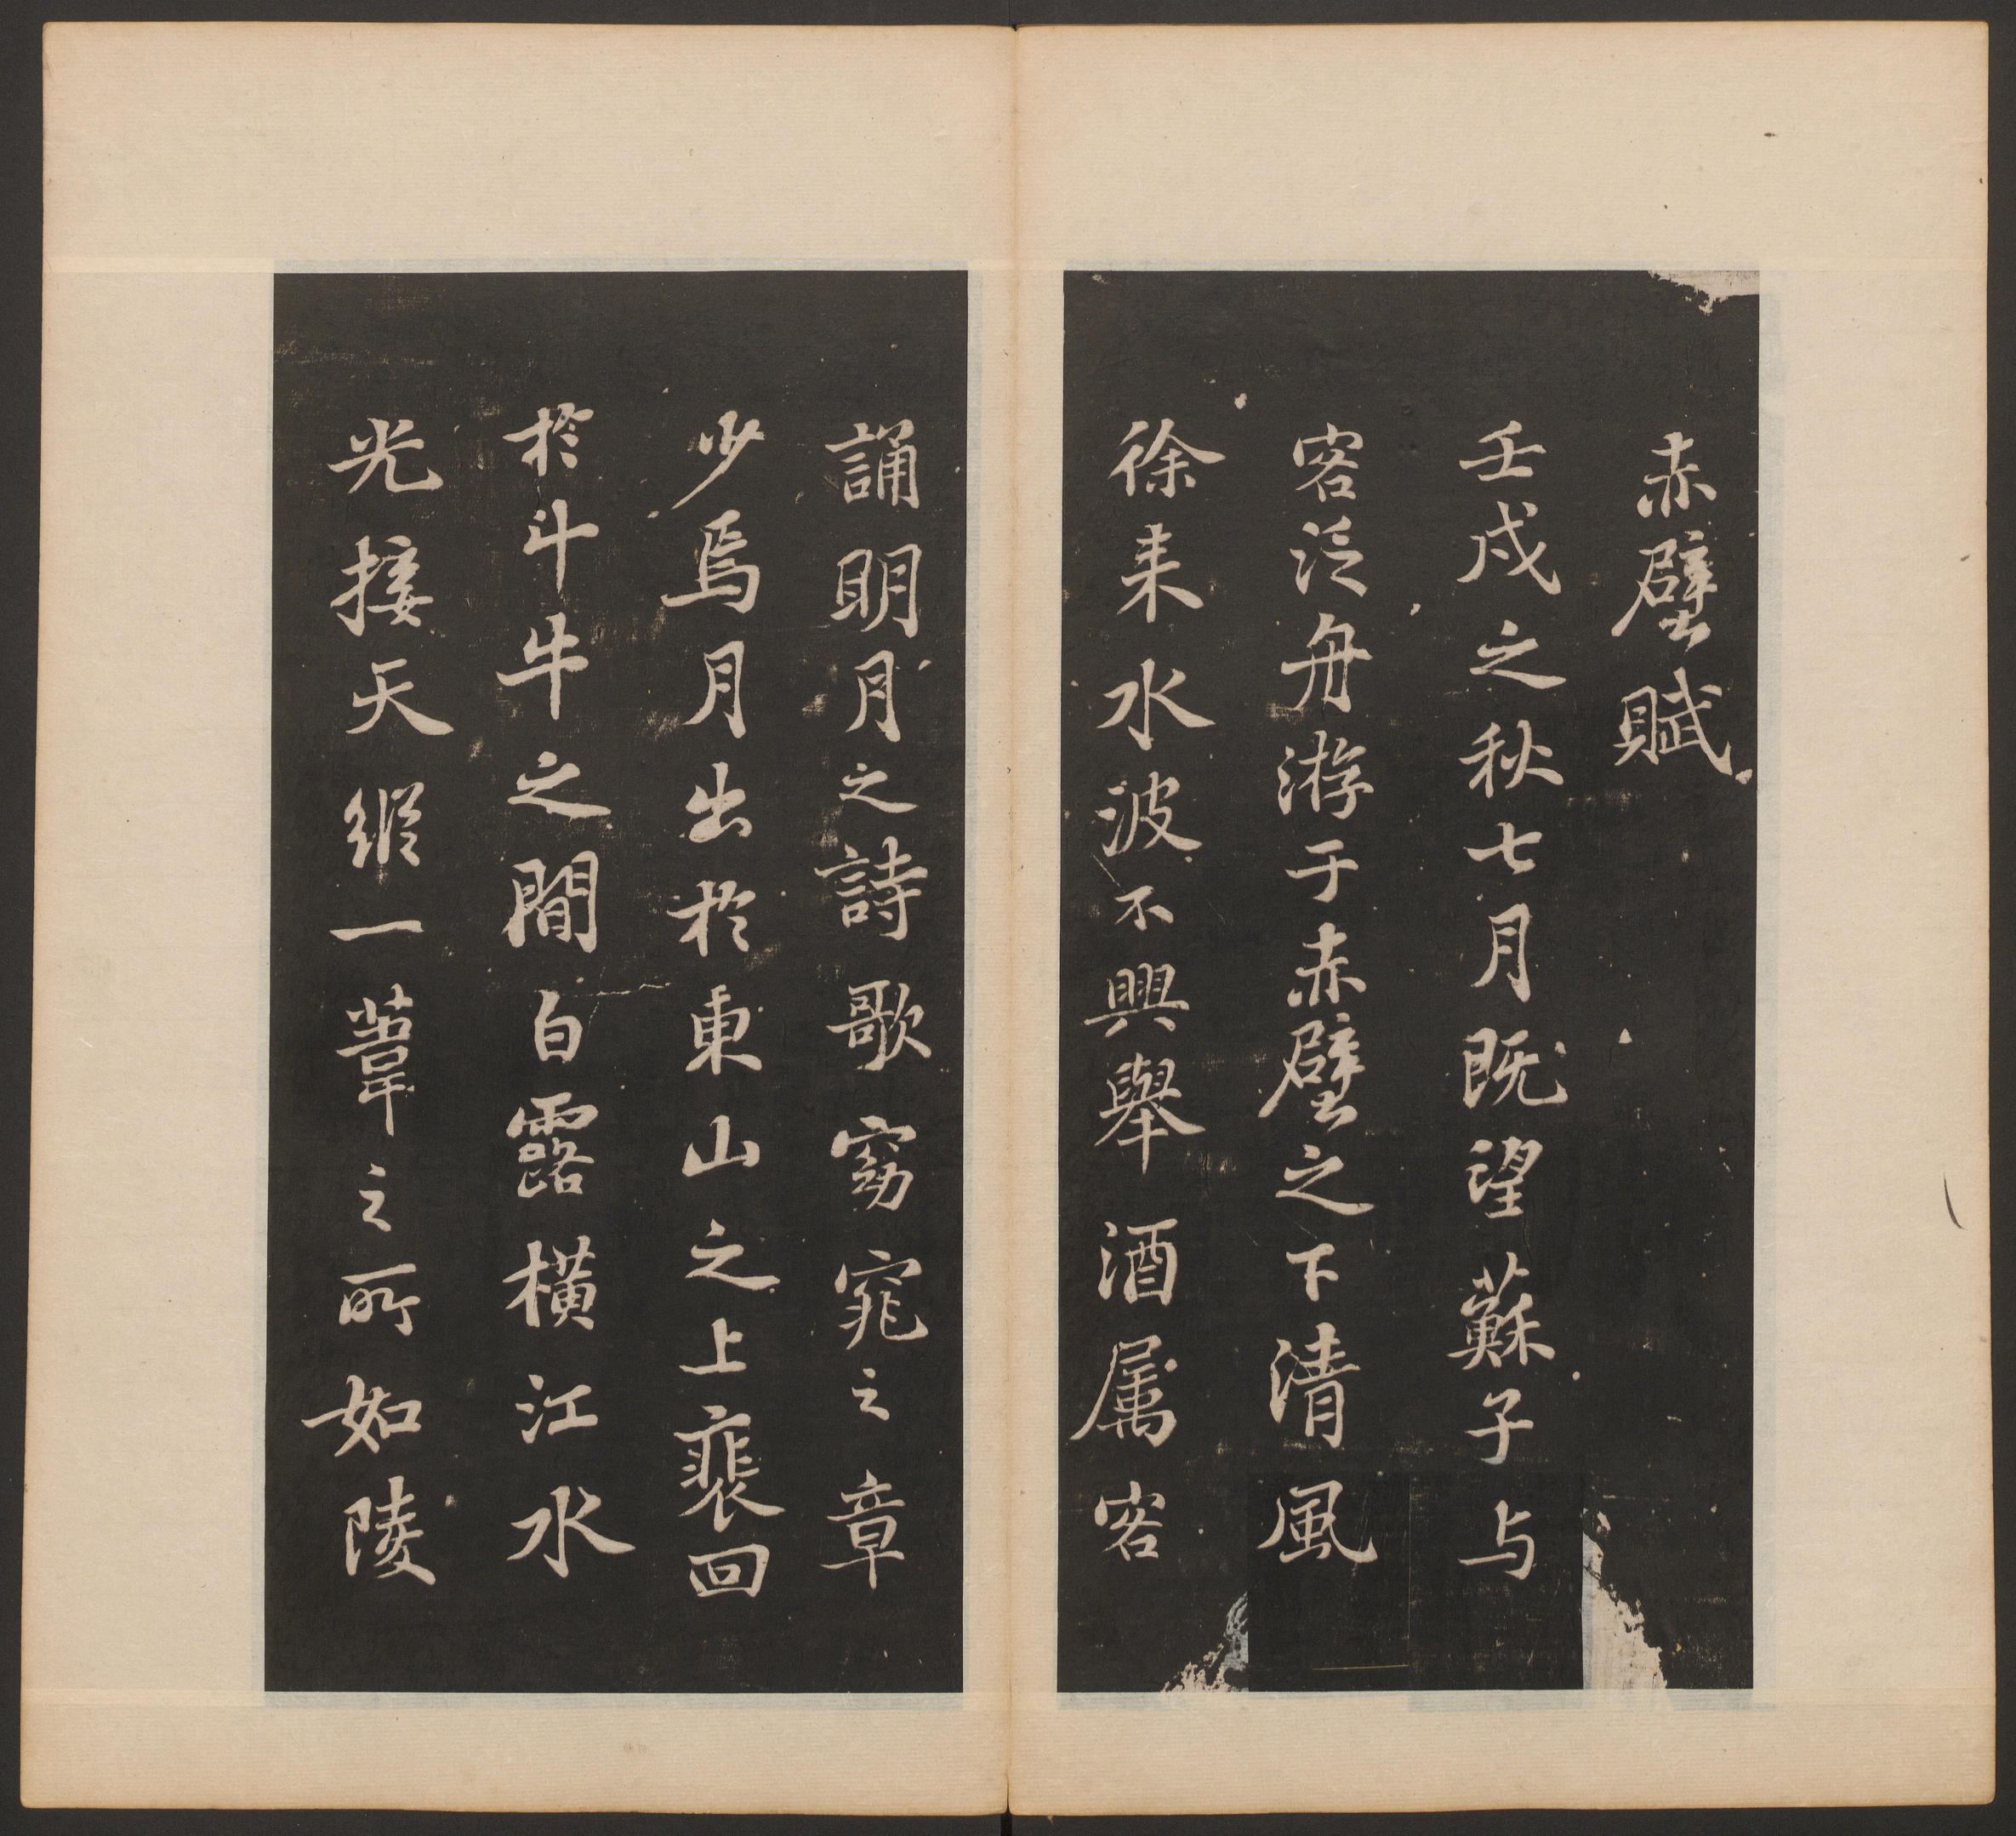 赤壁賦
壬戌之秋七月既望蘇子与
客泛舟游于赤壁之下清風
徐来水波不興舉酒属客
誦明月之詩歌窈窕之章
少焉月出於東山之上裴回
於斗牛之間白露橫江水
光接天縱一葦之所如陵